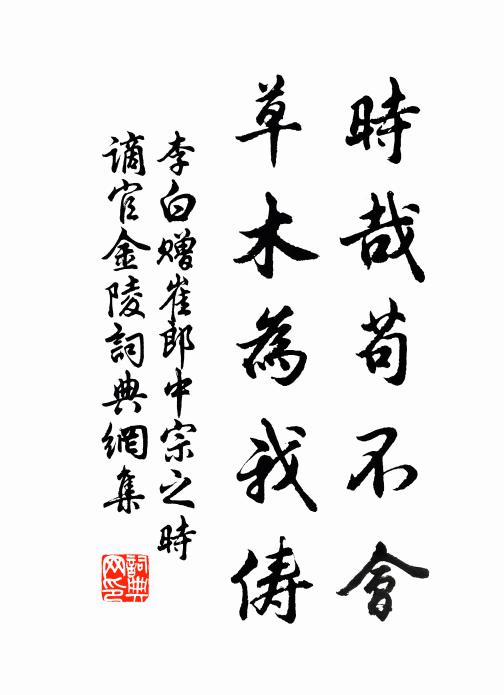 時哉苟不會
草木為我儔
李白贈崔郎中宗之時
謫官金陵詞典網集
詞典
网印